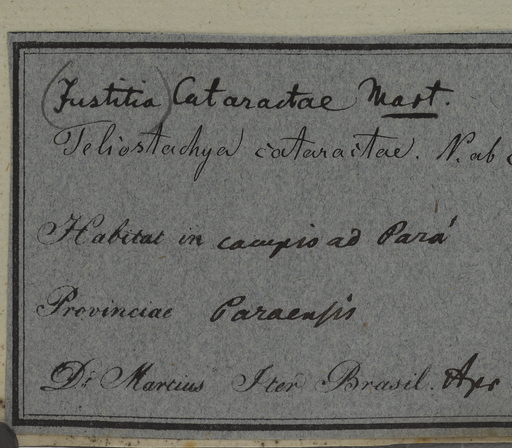 (Justitia) Cataractae Mart.
Teliostachya cataractae. N. ab
Habitat in campis ad Pará
Provinciae Paraensis
Dr Martius Iter Brasil. Apr